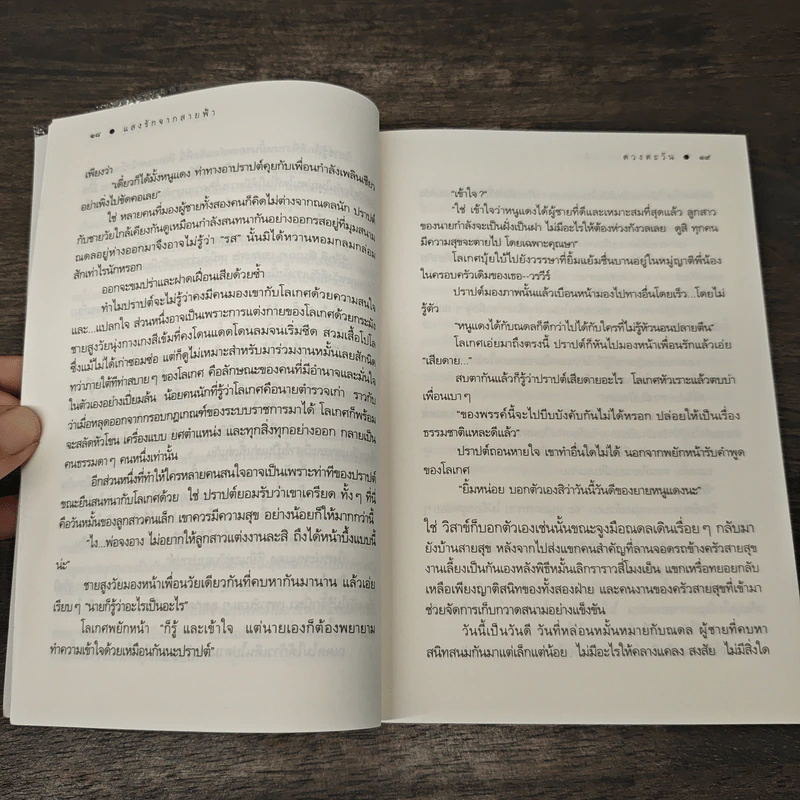 ๑๘ ● แสงรักจากสายฟ้า
เพียงว่า
“เดี๋ยวก็ได้มั้งหนูแดง ท่าทางอาปราปต์คุยกับเพื่อนกำลังเพลินเชียว
อย่าเพิ่งไปขัดคอเลย”
ใช่ หลายคนที่มองผู้ชายทั้งสองคนก็คิดไม่ต่างจากณดลนัก ปราปต์
กับชายวัยใกล้เคียงกันดูเหมือนกำลังสนทนากันอย่างออกรสอยู่ที่มุมสนาม
ณดลอยู่ห่างออกมาจึงอาจไม่รู้ว่า “รส” นั้นมิได้หวานหอมกลมกล่อม
สักเท่าไรนักหรอก
ออกจะขมปร่าและฝาดเฝื่อนเสียด้วยซ้ำ
ทำไมปราปต์จะไม่รู้ว่าคงมีคนมองเขากับโลเกศด้วยความสนใจ
และ...แปลกใจ ส่วนหนึ่งอาจเป็นเพราะการแต่งกายของโลเกศด้วยกระมัง
ชายสูงวัยนุ่งกางเกงสีเข้มที่คงโดนแดดโดนลมจนเริ่มซีด สวมเสื้อโปโล
ซึ่งแม้ไม่ได้เก่าซอมซ่อ แต่ก็ดูไม่เหมาะสำหรับมาร่วมงานหมั้นเลยสักนิด
ทว่าภายใต้ทีท่าสบายๆ ของโลเกศ คือลักษณะของคนที่มีอำนาจและมั่นใจ
ในตัวเองอย่างเปี่ยมล้น น้อยคนนักที่รู้ว่าโลเกศคือนายตำรวจเก่า ราวกับ
ว่าเมื่อหลุดออกจากกรอบกฎเกณฑ์ของระบบราชการมาได้ โลเกศก็พร้อม
จะสลัดหัวโขน เครื่องแบบ ยศตำแหน่ง และทุกสิ่งทุกอย่างออก กลายเป็น
คนธรรมดาๆ คนหนึ่งเท่านั้น
อีกส่วนหนึ่งที่ทำให้ใครหลายคนสนใจอาจเป็นเพราะท่าทีของปราปต์
ขณะยืนสนทนากับโลเกศด้วย ใช่ ปราปต์ยอมรับว่าเขาเครียด ทั้งๆ ที่นี่
คือวันหมั้นของลูกสาวคนเล็ก เขาควรมีความสุข อย่างน้อยก็ให้มากกว่านี้
“ไง...พ่อจงอาง ไม่อยากให้ลูกสาวแต่งงานละสิ ถึงได้หน้าบึ้งแบบนี้
น่ะ”
ชายสูงวัยมองหน้าเพื่อนวัยเดียวกันที่คบหากันมานาน แล้วเอ่ย
เรียบๆ “นายก็รู้ว่าอะไรเป็นอะไร”
โลเกศพยักหน้า “ก็รู้ และเข้าใจ แต่นายเองก็ต้องพยายาม
ทำความเข้าใจด้วยเหมือนกันนะปราปต์”
ดวงตะวัน ● ๑๙
“เข้าใจ ?”
“ใช่ เข้าใจว่าหนูแดงได้ผู้ชายที่ดีและเหมาะสมที่สุดแล้ว ลูกสาว
ของนายกำลังจะเป็นฝั่งเป็นฝา ไม่มีอะไรให้ต้องห่วงกังวลเลย ดูสิ ทุกคน
มีความสุขจะตายไป โดยเฉพาะคุณษา”
โลเกศบุ้ยใบ้ไปยังวรรษาที่ยิ้มแย้มชื่นบานอยู่ในหมู่ญาติพี่น้อง
ในครอบครัวเดิมของเธอ--วรวีร์
ปราปต์มองภาพนั้นแล้วเบือนหน้ามองไปทางอื่นโดยเร็ว...โดยไม่
รู้ตัว
“หนูแดงได้กับณดลก็ดีกว่าไปได้กับใครที่ไม่รู้หัวนอนปลายตีน”
โลเกศเอ่ยมาถึงตรงนี้ ปราปต์ก็หันไปมองหน้าเพื่อนรักแล้วเอ่ย
“เสียดาย...”
สบตากันแล้วก็รู้ว่าปราปต์เสียดายอะไร โลเกศหัวเราะแล้วตบบ่า
เพื่อนเบาๆ
“ของพรรค์นี้จะไปบีบบังคับกันไม่ได้หรอก ปล่อยให้เป็นเรื่อง
ธรรมชาติแหละดีแล้ว”
ปราปต์ถอนหายใจ เขาทำอื่นใดไม่ได้ นอกจากพยักหน้ารับคำพูด
ของโลเกศ
“ยิ้มหน่อย บอกตัวเองสิว่าวันนี้วันดีของยายหนูแดงนะ”
ใช่ วิสาข์ก็บอกตัวเองเช่นนั้นขณะจูงมือณดลเดินเรื่อยๆ กลับมา
ยังบ้านสายสุข หลังจากไปส่งแขกคนสำคัญที่ลานจอดรถข้างครัวสายสุข
งานเลี้ยงเป็นกันเองหลังพิธีหมั้นเลิกราราวสี่โมงเย็น แขกเหรื่อทยอยกลับ
เหลือเพียงญาติสนิทของทั้งสองฝ่าย และคนงานของครัวสายสุขที่เข้ามา
ช่วยจัดการเก็บกวาดสนามอย่างแข็งขัน
วันนี้เป็นวันดี วันที่หล่อนหมั้นหมายกับณดล ผู้ชายที่คบหา
สนิทสนมกันมาแต่เล็กแต่น้อย ไม่มีอะไรให้คลางแคลง สงสัย ไม่มีสิ่งใด